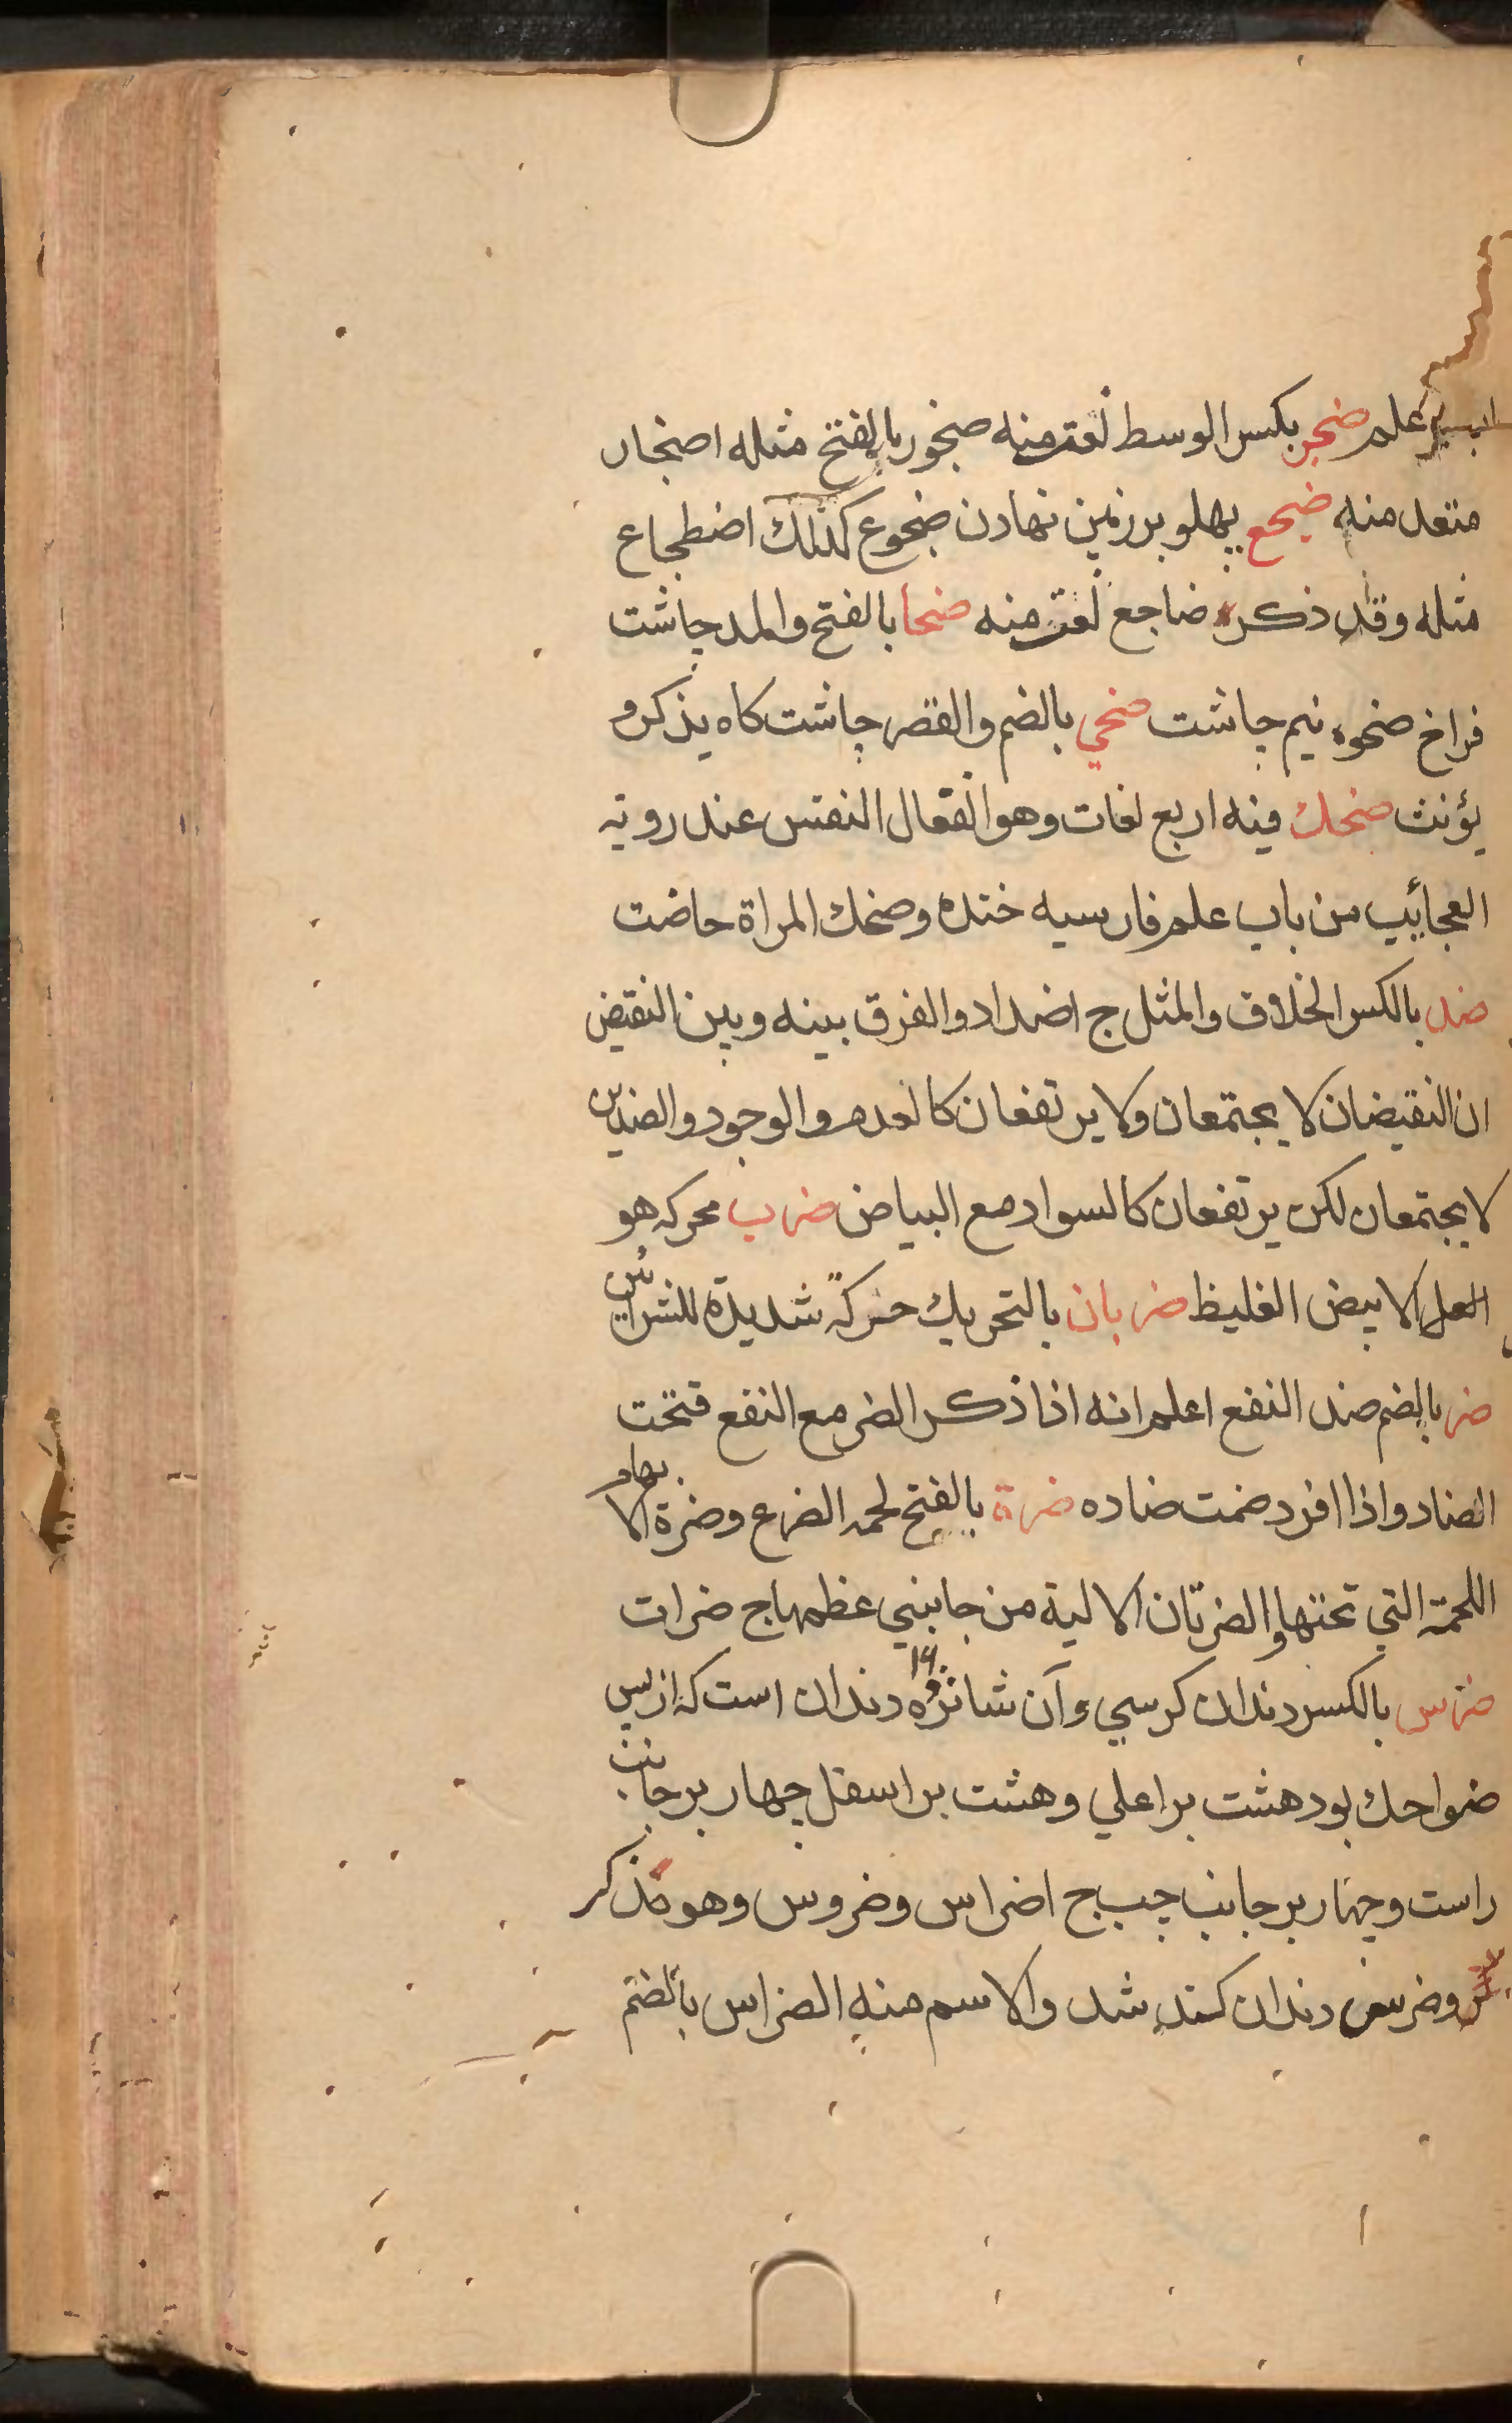 علم ضجر بكسر الوسط لغت منه ضجور بالفتح مثله اضجار
متعد منه ضجع پهلو بر زمين نهادن ضجوع كذلك اضطجاع
مثله وقد ذكر ضاجع لغت منه ضحا بالفتح والمد چاشت
فراخ ضحوه نيم چاشت ضحي بالضم والقصر چاشت كاه يذكر و
يؤنث ضحك فيه اربع لغات وهو انفعال النفس عند روية
العجائب من باب علم فارسيه خنده وضحك المراة حاضت
ضد بالكسر الخلاف والمثل ج اضداد والفرق بينه وبين النقيض
ان النقيضان لا يجتمعان ولا يرتفعان كالعدم والوجود والضدين
لا يجتمعان لكن يرتفعان كالسواد مع البياض ضرب محركه هو
العسل الابيض الغليظ ضربان بالتحريك حركةً شديدة للشرايين
ضر بالضم ضد النفع اعلم انه اذا ذكر الضر مع النفع فتحت
الضاد واذا افرد ضمت ضاده ضرة بالفتح لحمه الضرع وضرة الابهام
اللحمة التي تحتها والضرتان الالية من جانبي عظمها ج ضرات
ضرس بالكسر دندان كرسي وآن شانزده ١٦ دندان است كه از پس
ضواحك بود هشت بر اعلي وهشت بر اسفل چهار بر جانب
راست وچهار بر جانب چپ ج اضراس وضروس وهو مذكر
وضرس دندان كند شد والاسم منه الضراس بالضم